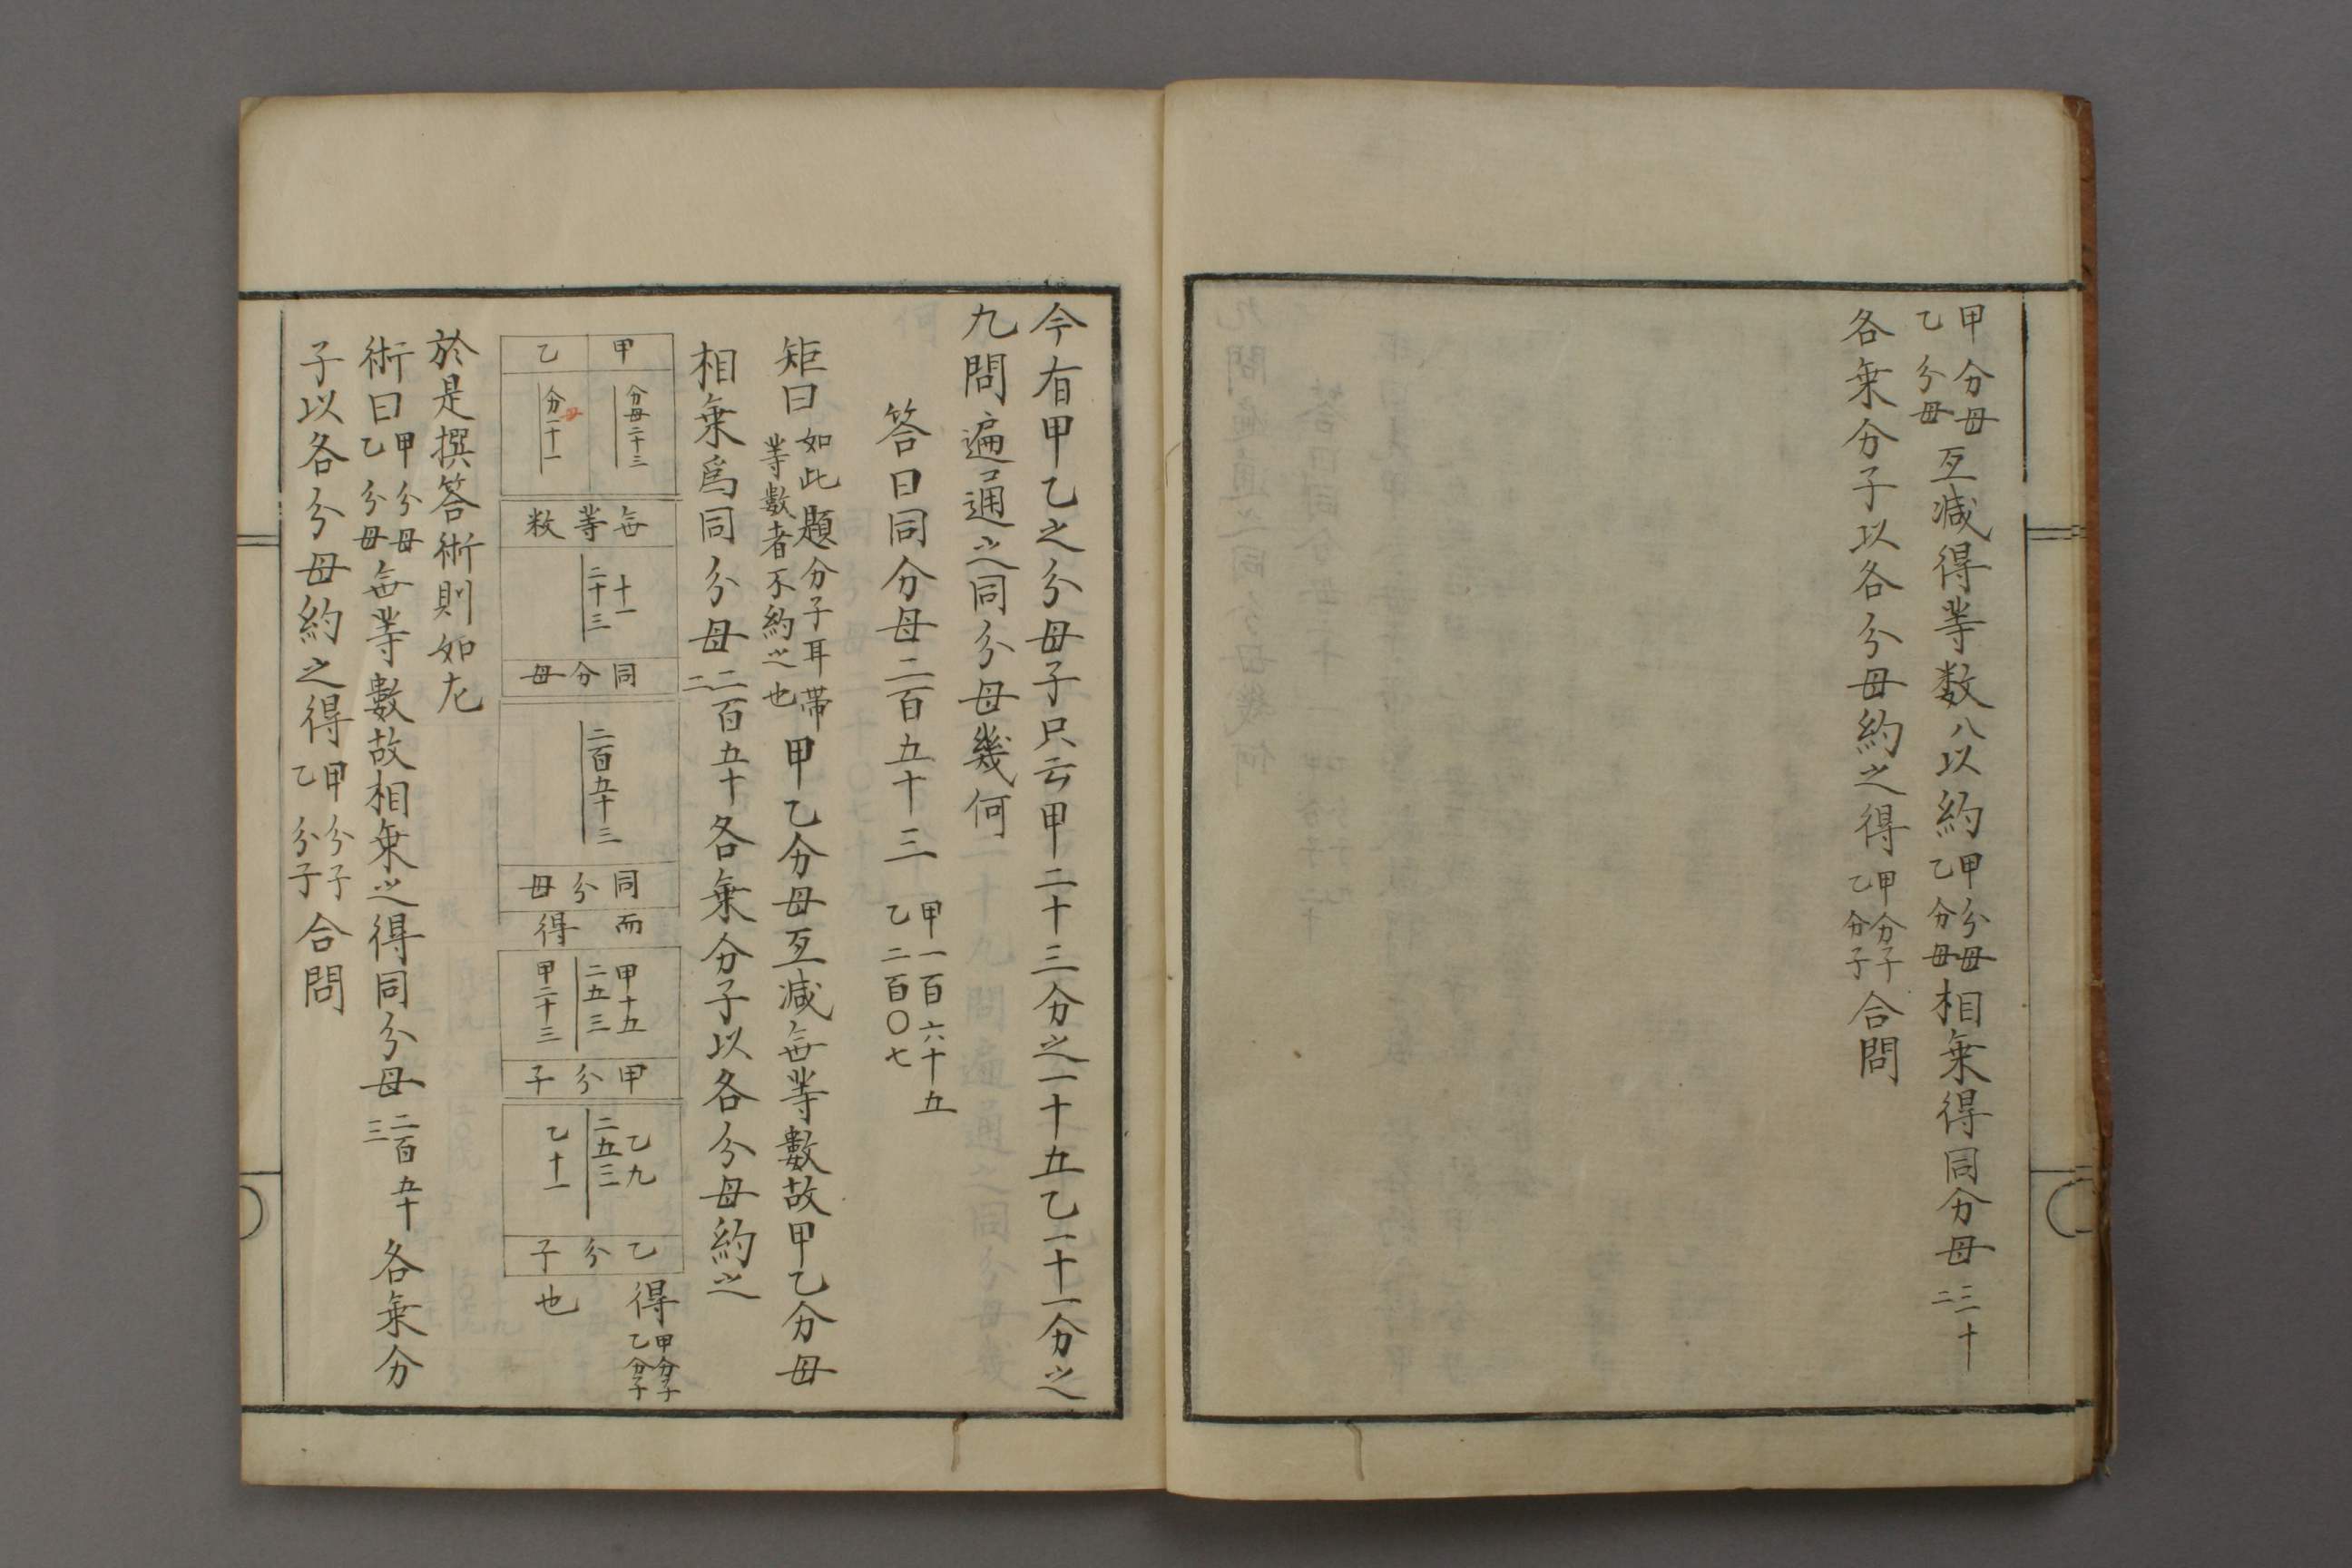 甲分母乙分母互減得等数八以約甲分母乙分母相乗得同分母三十二
各乗分子以各分母約之得甲分子乙分子合問
今有甲乙之分母子只云甲二十三分之一十五乙一十一分之
九問遍通之同分母幾何
答曰同分母二百五十三甲一百六十五乙二百〇七
矩曰如此題分子耳帯等數者不約之也甲乙分母互減毎等數故甲乙分母
相乗爲同分母二百五十二各乗分子以各分母約之
得甲分子乙分子也
甲
分母二十三
乙
分母十一
毎等数
十一
二十三
同分母
二百五十三
同分母
而得
甲十五
二五三
甲二十三
甲分子
乙九
二五三
乙十一
乙分子
於是撰答術則如左
術曰甲分母乙分母毎等數故相乗之得同分母二百五十三各乗分
子以各分母約之得甲分子乙分子合問